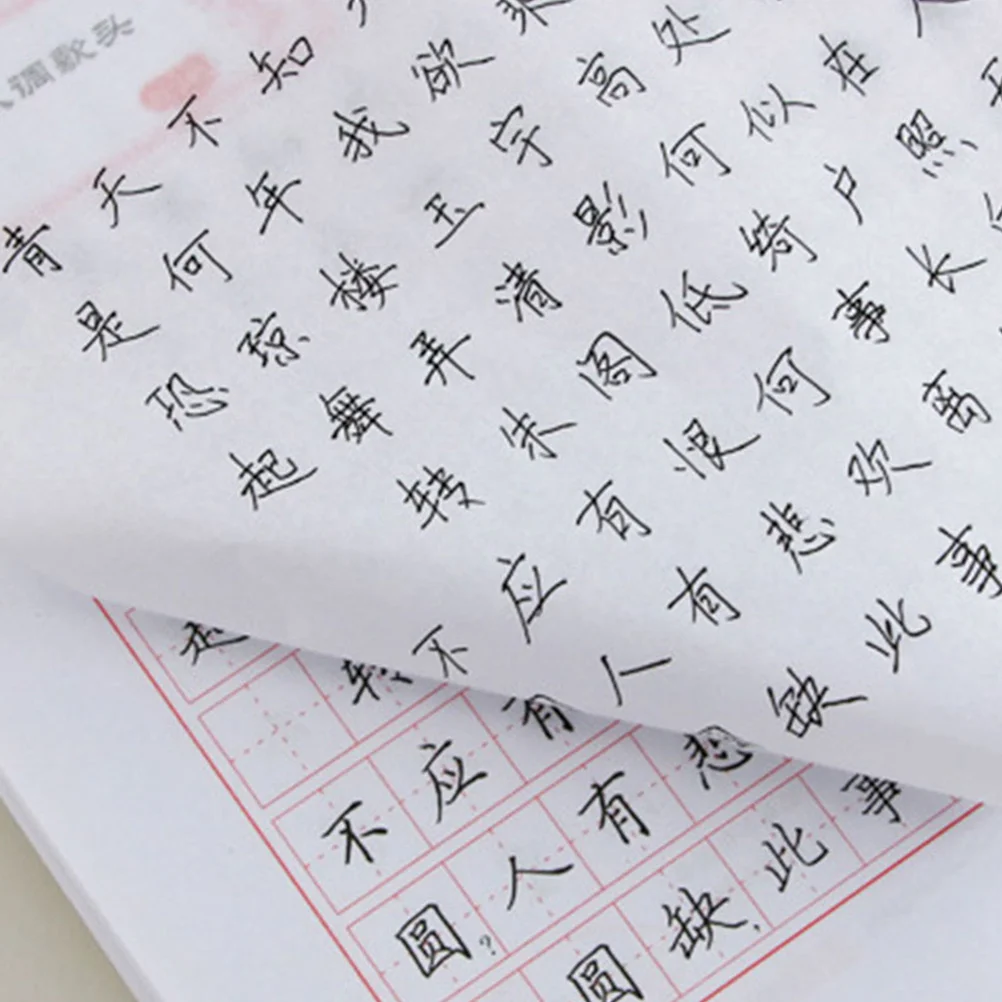 调歌头
青天不知
是何年我欲乘
恐琼楼玉宇高处
起舞弄清影何似在
转朱阁低绮户照
不应有恨何事长
人有悲欢离
缺此事
起
转
不应有
圆?人有悲
圆缺,此事